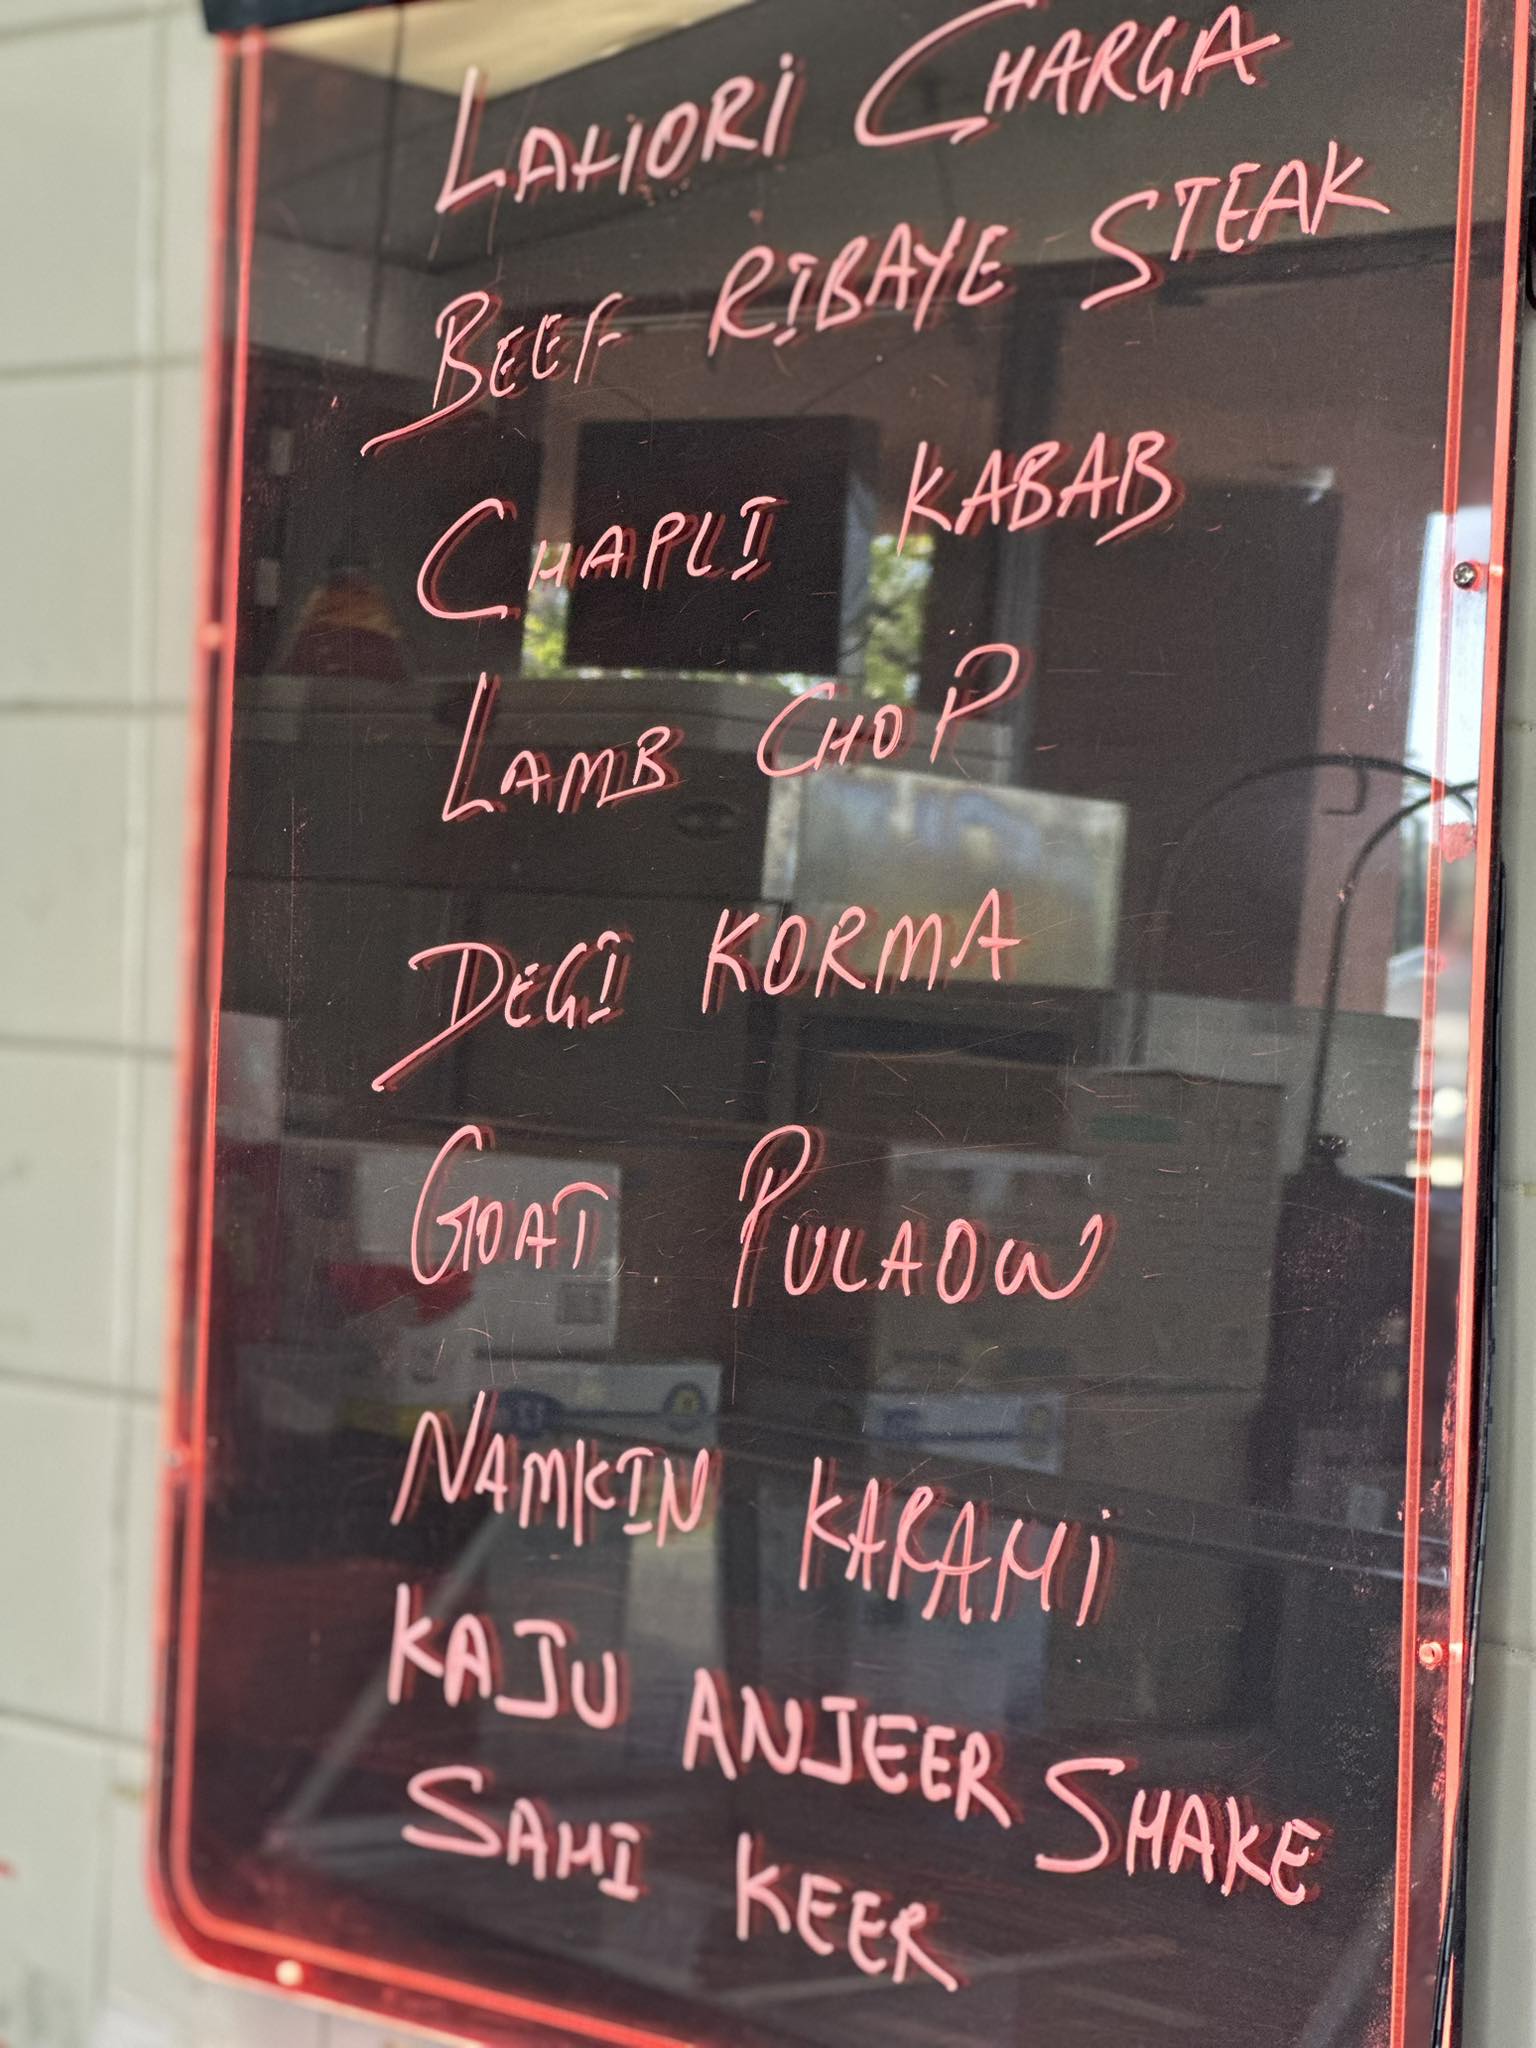 LAHORI CHARGA
BEEF RIBAYE STEAK
CHAPLI KABAB
LAMB CHOP
DEGI KORMA
GOAT PULAOW
NAMKIN KARAHI
KAJU ANJEER SHAKE
SAHI KEER